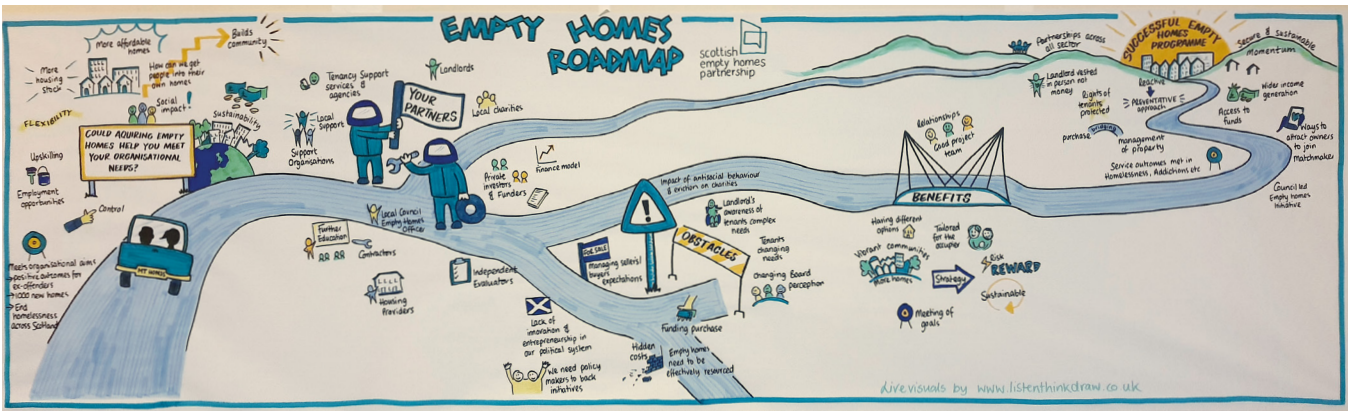 EMPTY HOMES
ROADMAP
scottish
empty homes
partnership
More affordable
homes
Builds
community
More
housing
stock
How can we get
people into their
own homes
Social
impact!
FLEXIBILITY
Sustainability
COULD AQUIRING EMPTY
HOMES HELP YOU MEET
YOUR ORGANISATIONAL
NEEDS?
Upskilling
Employment
opportunities
Control
Meets organisational aims
→ positive outcomes for
ex-offenders
→ 1000 new homes
→ End
homelessness
across Scotland
MT HOMES
Tenancy Support
services &
agencies
Local
Support
Support
Organisations
YOUR
PARTNERS
Landlords
Local charities
Private
investors
& Funders
Finance model
Local Council
Empty Homes
Officer
Further
Education
Contractors
Housing
Providers
Independent
Evaluators
Lack of
innovation &
entrepreneurship in
our political system
We need policy
makers to back
initiatives
FOR SALE
Managing sellers/
buyers
expectations
Impact of antisocial behaviour
& eviction on charities
!
Landlord's
awareness of
tenants complex
needs
OBSTACLES
Tenants
changing
needs
Changing Board
perception
Funding purchase
Hidden
costs
Empty homes
need to be
effectively resourced
Relationships
Good project
team
BENEFITS
Having different
options
Tailored
for the
occupier
Vibrant communities
More homes
Strategy
Risk
REWARD
Sustainable
Meeting of
goals
Partnerships across
all sector
Landlord vested
in person not
money
Rights of
tenants
protected
purchase bridging management
of property
Service outcomes met in
Homelessness, Addictions etc
SUCCESSFUL EMPTY
HOMES
PROGRAMME
Reactive
PREVENTATIVE
approach
Secure & sustainable
momentum
Wider income
generation
Access to
funds
Ways to
attract owners
to join
Matchmaker
Council led
Empty homes
Initiative
Live visuals by www.listenthinkdraw.co.uk